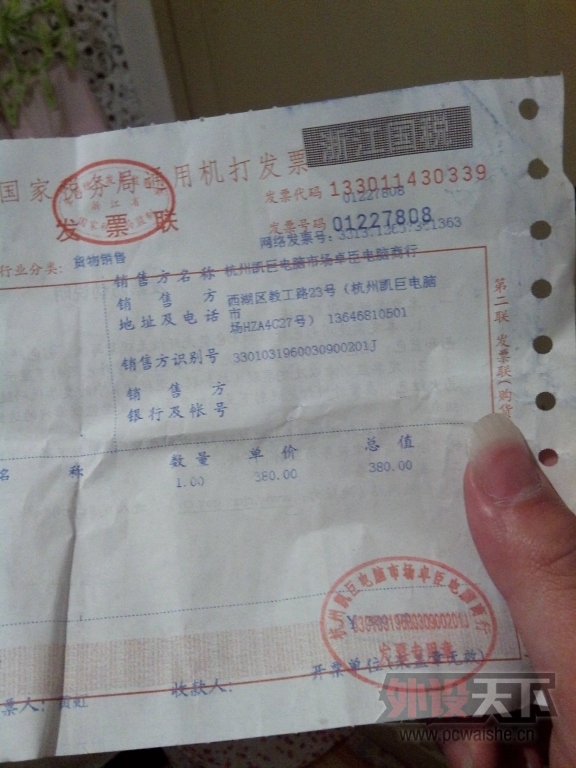 浙江国税
国家税务局通用机打发票
发票代码 133011430339
01227808
发票联
发票号码 01227808
网络发票号:
行业分类: 货物销售
销售方名称 杭州凯巨电脑市场卓臣电脑商行
销售方
地址及电话
西湖区教工路23号（杭州凯巨电脑
市
场HZA4C27号） 13646810501
销售方识别号 3301031960030900201J
销售方
银行及帐号
第二联 发票联(购货
名称 数量 单价 总值
1.00 380.00 380.00
杭州凯巨电脑市场卓臣电脑商行
发票专用章
票人: 收款人: 开票单位(未盖章无效)
外设天下
www.pcwaishe.cn